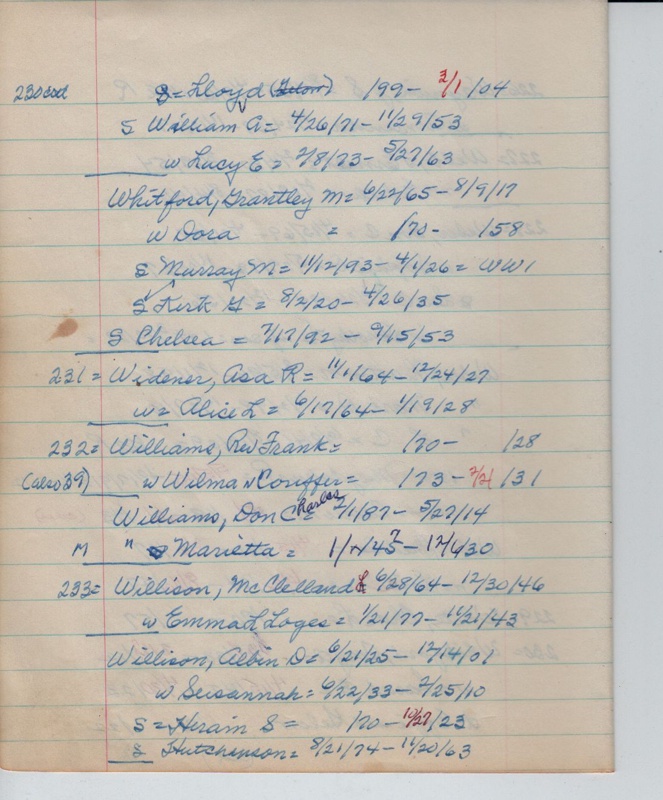 230 cod S = Lloyd /99 - 3/1/04
S William A = 4/26/71 - 11/29/53
w Lucy E = 2/8/73 - 5/27/63
Whitford, Grantley M = 6/22/65 - 8/9/17
w Dora = /70 - /58
S Murray M = 11/12/93 - 4/1/26 = WW1
S Kirk G = 8/2/20 - 4/26/35
S Chelsea = 7/17/92 - 9/15/53
231 = Widener, Asa R = 11/1/64 - 12/24/27
w = Alice L = 6/17/64 - 1/19/28
232 = Williams, Rev Frank = /70 - /28
(also 39) w Wilma = /73 - 2/21/31
Williams, Don Charles = 2/1/87 - 5/27/14
M " Marietta = - 12/6/30
233 = Willison, McClelland 6/28/64 - 12/30/46
w Emma L Loges = 1/21/77 - 11/21/43
Willison, Albin D = 6/21/25 - 12/14/01
w Seusannah = 6/22/33 - 2/25/10
S = Hiram S = /70 - 10/27/23
S Hutchenson = 8/21/74 - 11/20/63